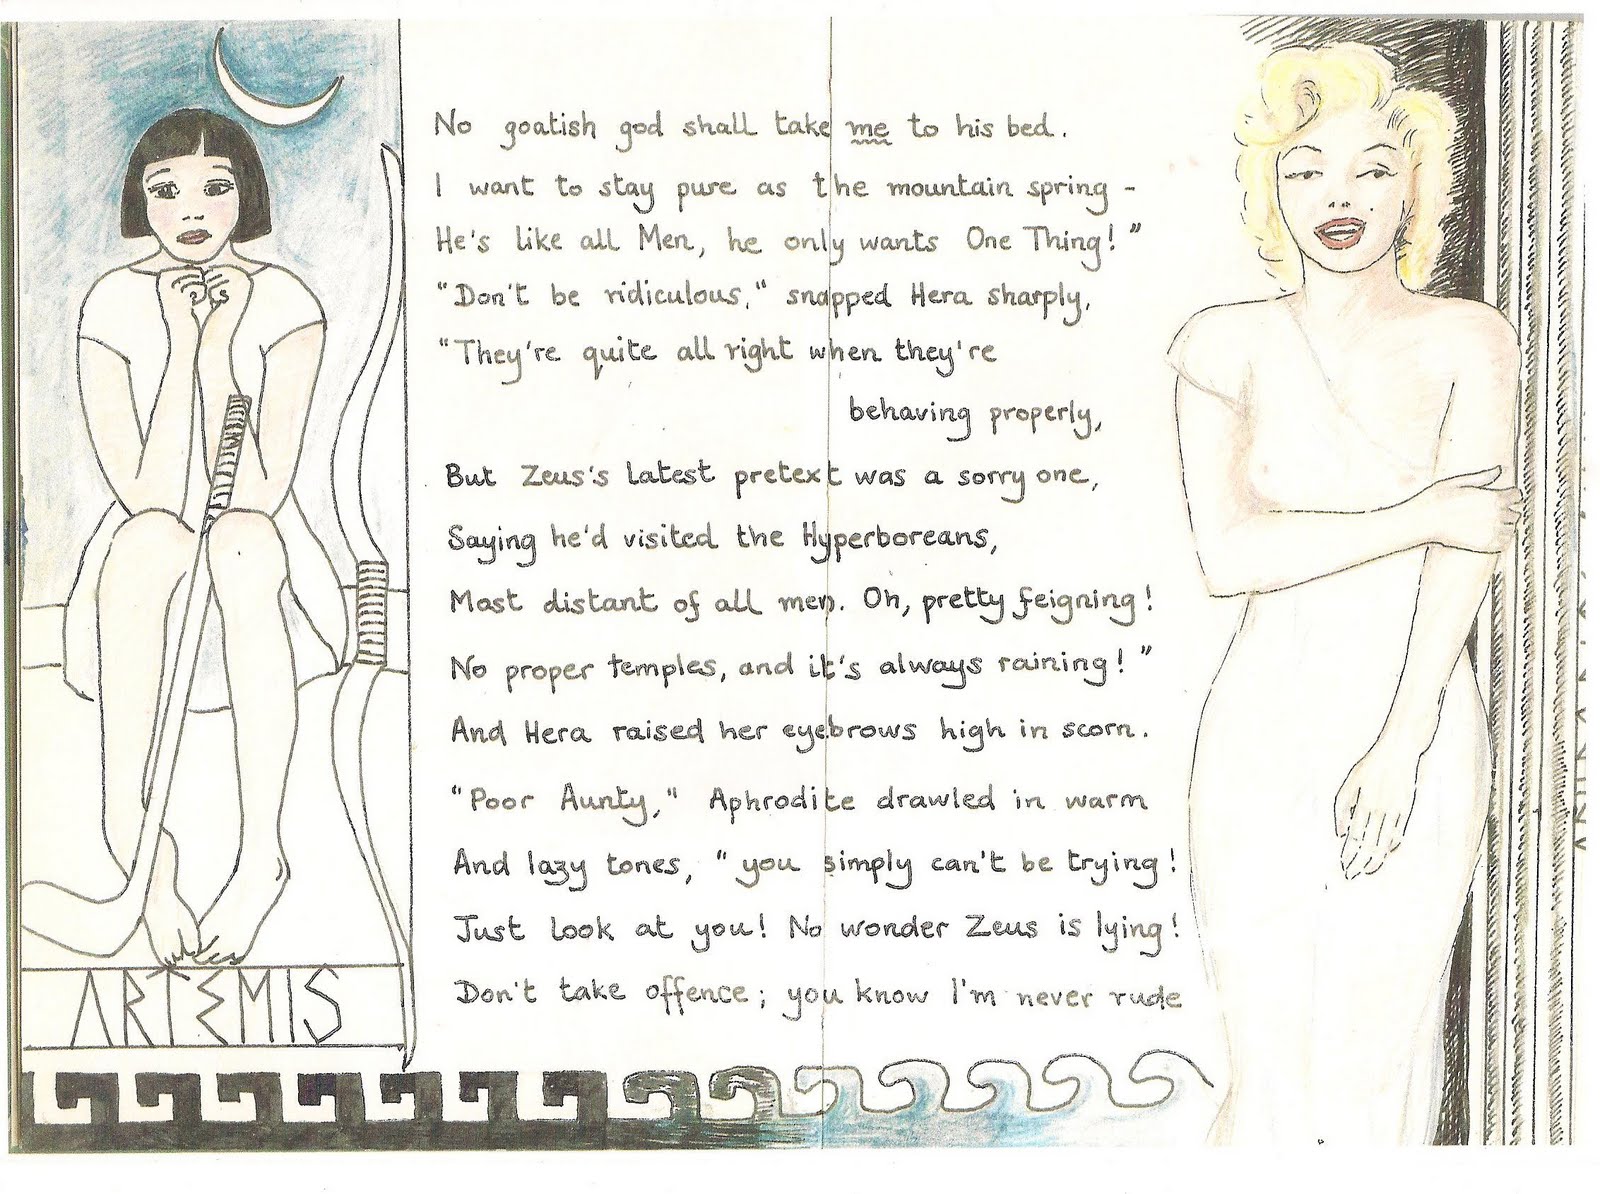 No goatish god shall take me to his bed.
I want to stay pure as the mountain spring -
He's like all Men, he only wants One Thing!"
"Don't be ridiculous," snapped Hera sharply,
"They're quite all right when they're
behaving properly,
But Zeus's latest pretext was a sorry one,
Saying he'd visited the Hyperboreans,
Most distant of all men. Oh, pretty feigning!
No proper temples, and it's always raining!"
And Hera raised her eyebrows high in scorn.
"Poor Aunty," Aphrodite drawled in warm
And lazy tones, "you simply can't be trying!
Just look at you! No wonder Zeus is lying!
Don't take offence; you know I'm never rude
ARTEMIS